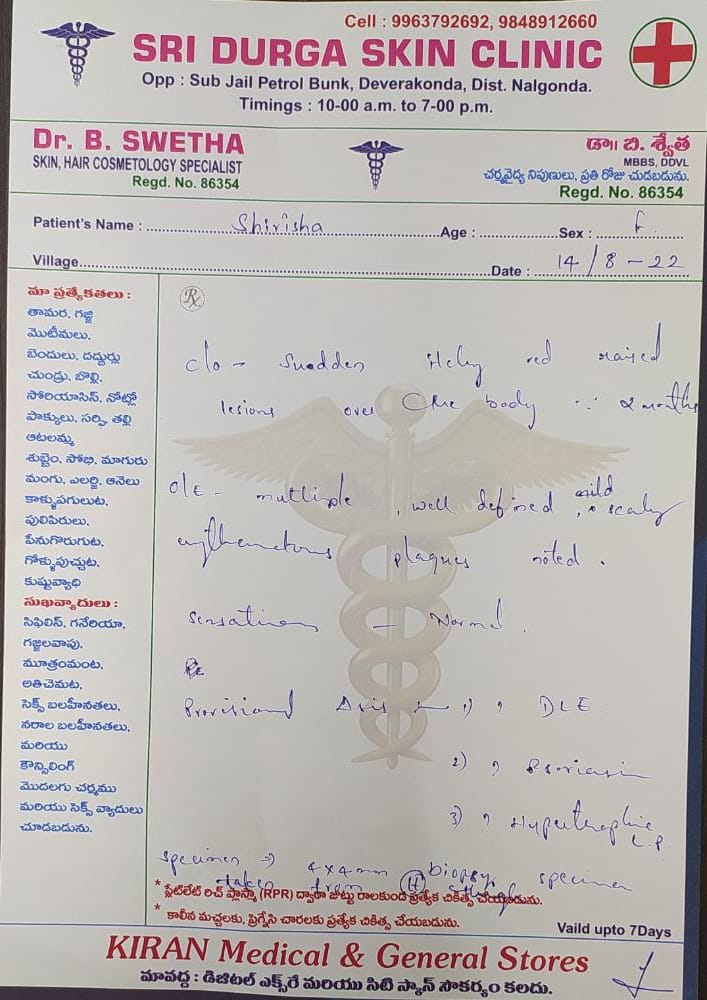 Cell : 9963792692, 9848912660
SRI DURGA SKIN CLINIC
Opp : Sub Jail Petrol Bunk, Deverakonda, Dist. Nalgonda.
Timings : 10-00 a.m. to 7-00 p.m.
Dr. B. SWETHA
SKIN, HAIR COSMETOLOGY SPECIALIST
Regd. No. 86354
డా॥ బి. శ్వేత
MBBS, DDVL
చర్మవైద్య నిపుణులు, ప్రతి రోజు చుడబడును.
Regd. No. 86354
Patient's Name : Shirisha Age : Sex : F
Village Date : 14/8-22
మా ప్రత్యేకతలు :
తామర, గజ్జి
మొటిమలు,
బెందులు, దద్దుర్లు
చుండ్రు, బొల్లి,
సోరియాసిస్, నోట్లో
పాక్కులు, సర్పి, తల్లి
ఆటలమ్మ
శుబ్టెం, సోబి, మాగురు
మంగు, ఎలర్జి, ఆనెలు
కాళ్ళుపగులుట,
పులిపిరులు,
పేనుగొరుగుట,
గోళ్ళుపుచ్చుట,
కుష్టువ్యాధి
సుఖవ్యాదులు :
సిఫిలిస్, గనేరియా,
గజ్జలవాపు,
మూత్రంమంట,
అతిచెమట,
సెక్స్ బలహీనతలు,
నరాల బలహీనతలు,
మరియు
కౌన్సిలింగ్
మొదలగు చర్మము
మరియు సెక్స్ వ్యాదులు
చూడబడును.
Rx
c/o - Suadden Itchy red raised
lesions over the body 2 months
O/E - multiple, well defined, mild scaly
erythematous plaques noted.
Sensations - Normal
Provisional Δsis 1) ? DLE
2) ? Psoriasis
3) ? Hypertrophic L.P.
specimen → 4x4mm biopsy specimen
taken from (H) thigh
* ప్లేట్‌లేట్ రిచ్ ప్లాస్మా (RPR) ద్వారా జుట్టు రాలకుండ ప్రత్యేక చికిత్స చేయబడును.
* కాలిన మచ్చలకు, ప్రెగ్నేన్సి చారలకు ప్రత్యేక చికిత్స చేయబడును.
Vaild upto 7Days
KIRAN Medical & General Stores
మావద్ద : డిజిటల్ ఎక్స్‌రే మరియు సిటి స్కాన్ సౌకర్యం కలదు.